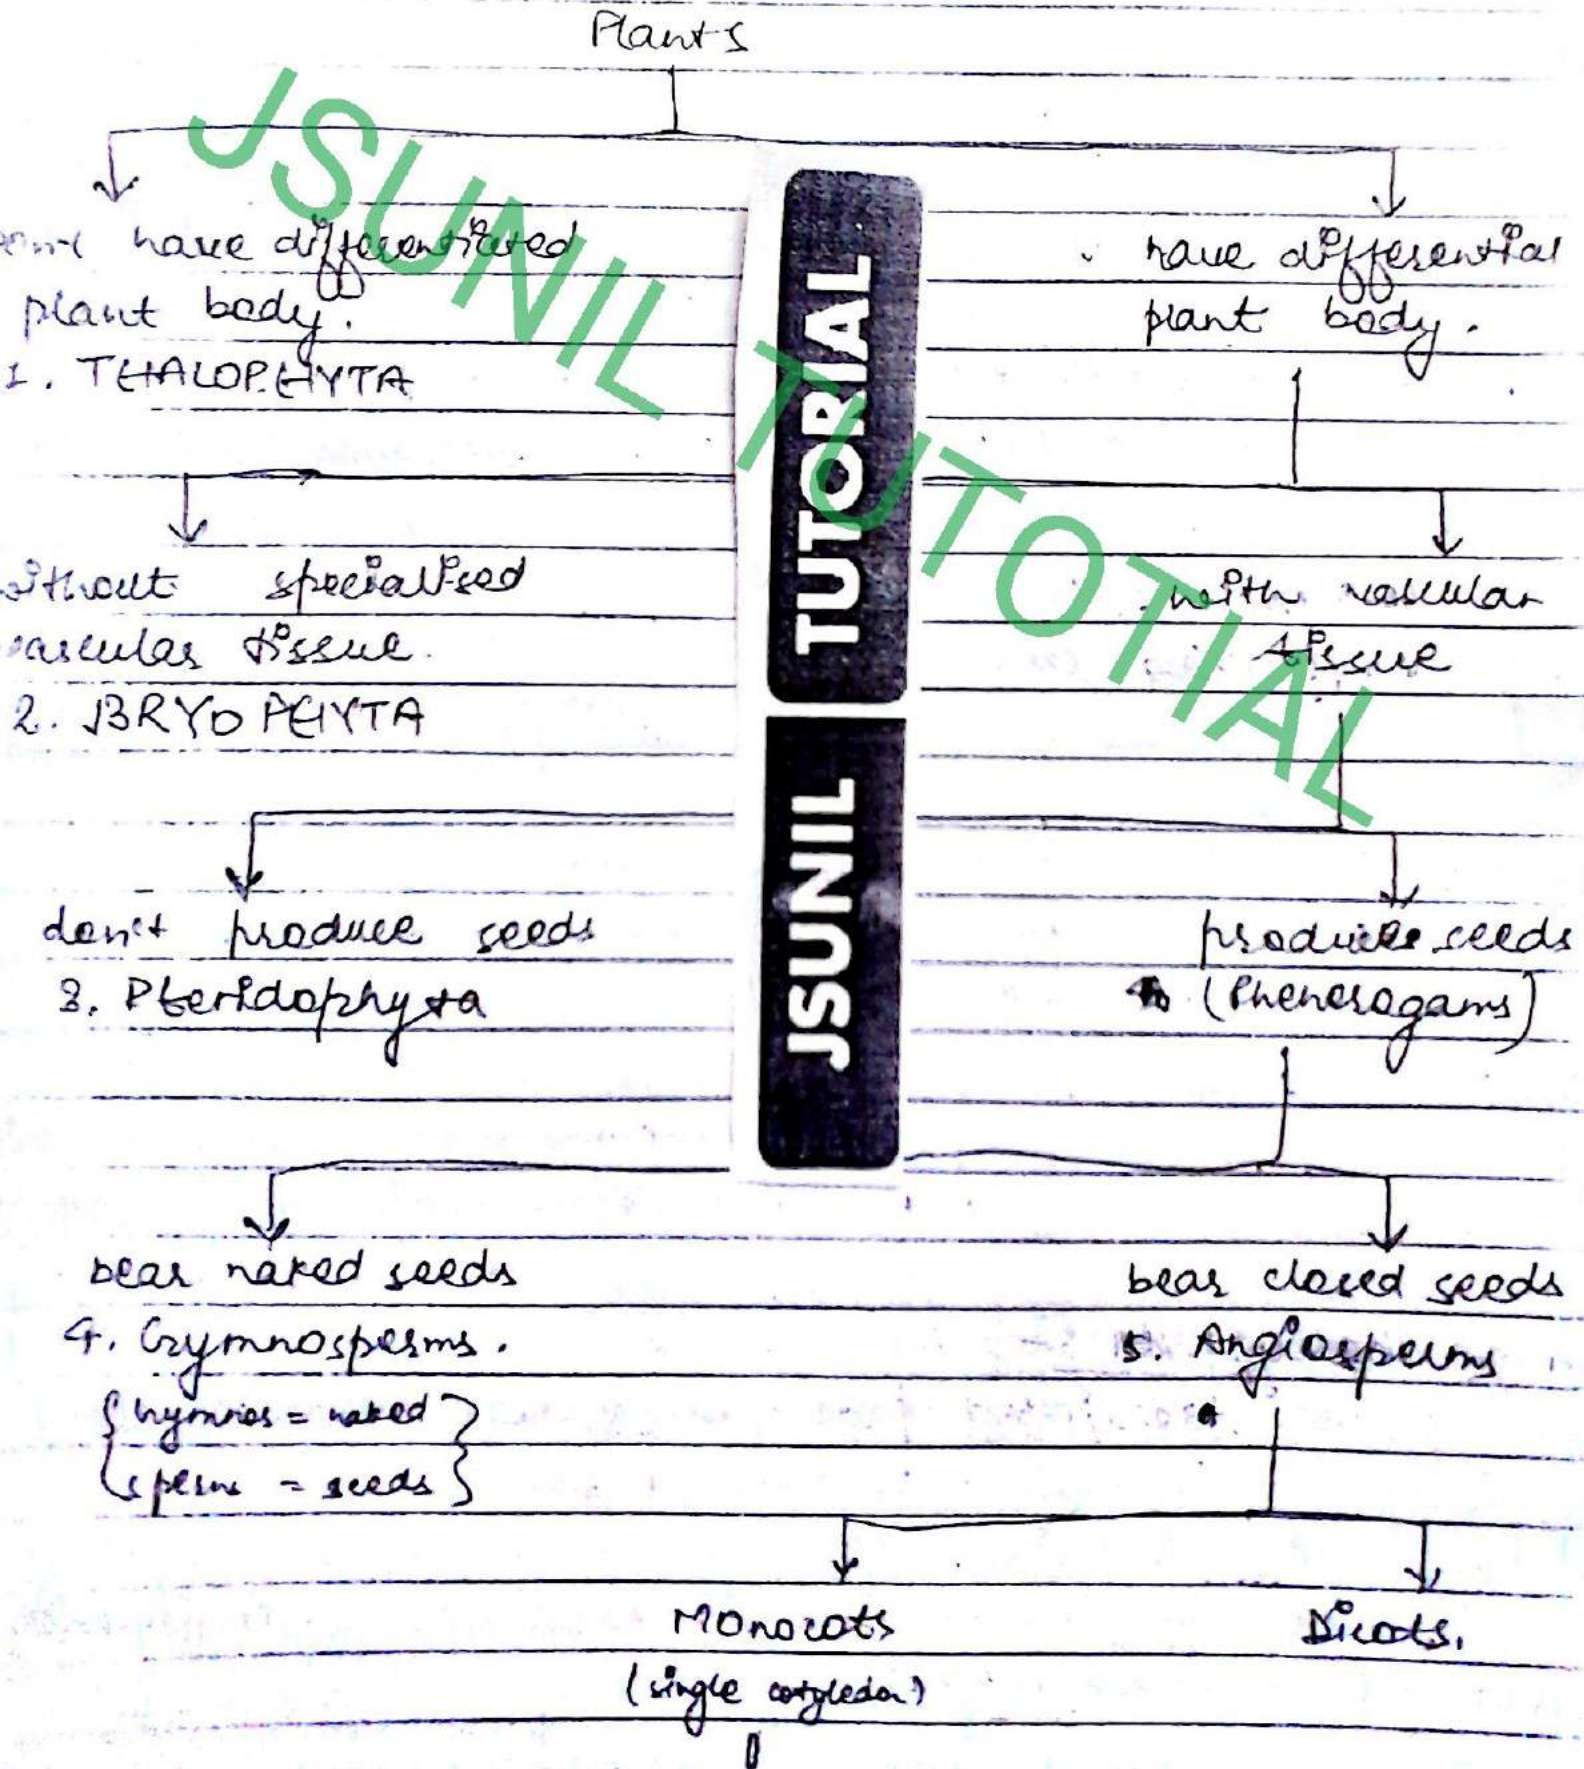 Plants
have differentiated
plant body.
1. THALOPHYTA
have differential
plant body.
without specialised
vascular tissue.
2. BRYOPHYTA
with vascular
tissue
don't produce seeds
3. Pteridophyta
produces seeds
(Phenerogams)
bear naked seeds
4. Gymnosperms.
{Gymnos = naked}
{sperms = seeds}
bear closed seeds
5. Angiosperms
Monocots
(single cotyledon)
Dicots.
JSUNIL TUTORIAL
JSUNIL TUTOTIAL